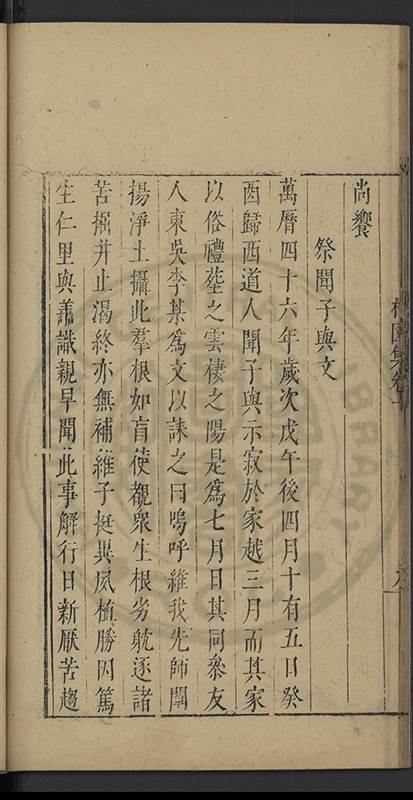 尚饗
祭聞子與文
萬曆四十六年歲次戊午後四月十有五日癸
酉歸西道人聞子與示寂於家越三月而其家
以俗禮塟之雲棲之陽是爲七月日其同叅友
人東吳李某爲文以誄之曰嗚呼維我先師闡
揚淨土攝此羣根如盲使覩衆生根劣躭逐諸
苦掘井止渴終亦無補維子挺異夙植勝因篤
生仁里與善識親早聞此事解行日新厭苦趨